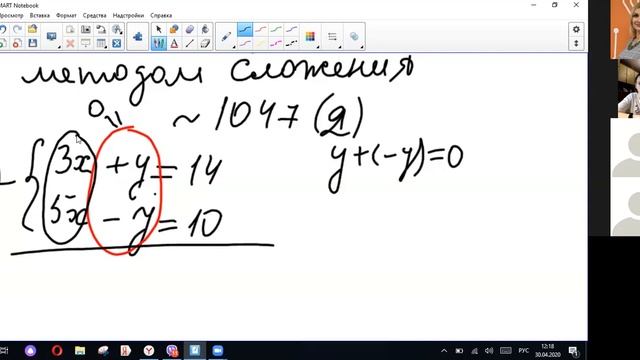 MART Notebook
Просмотр Вставка Формат Инструменты Рисование Средства Надстройки Справка
методом сложения
0
~ 1047 (2)
3x + y = 14
y+(-y)=0
5x - y = 10
РУС
12:18
30.04.2020